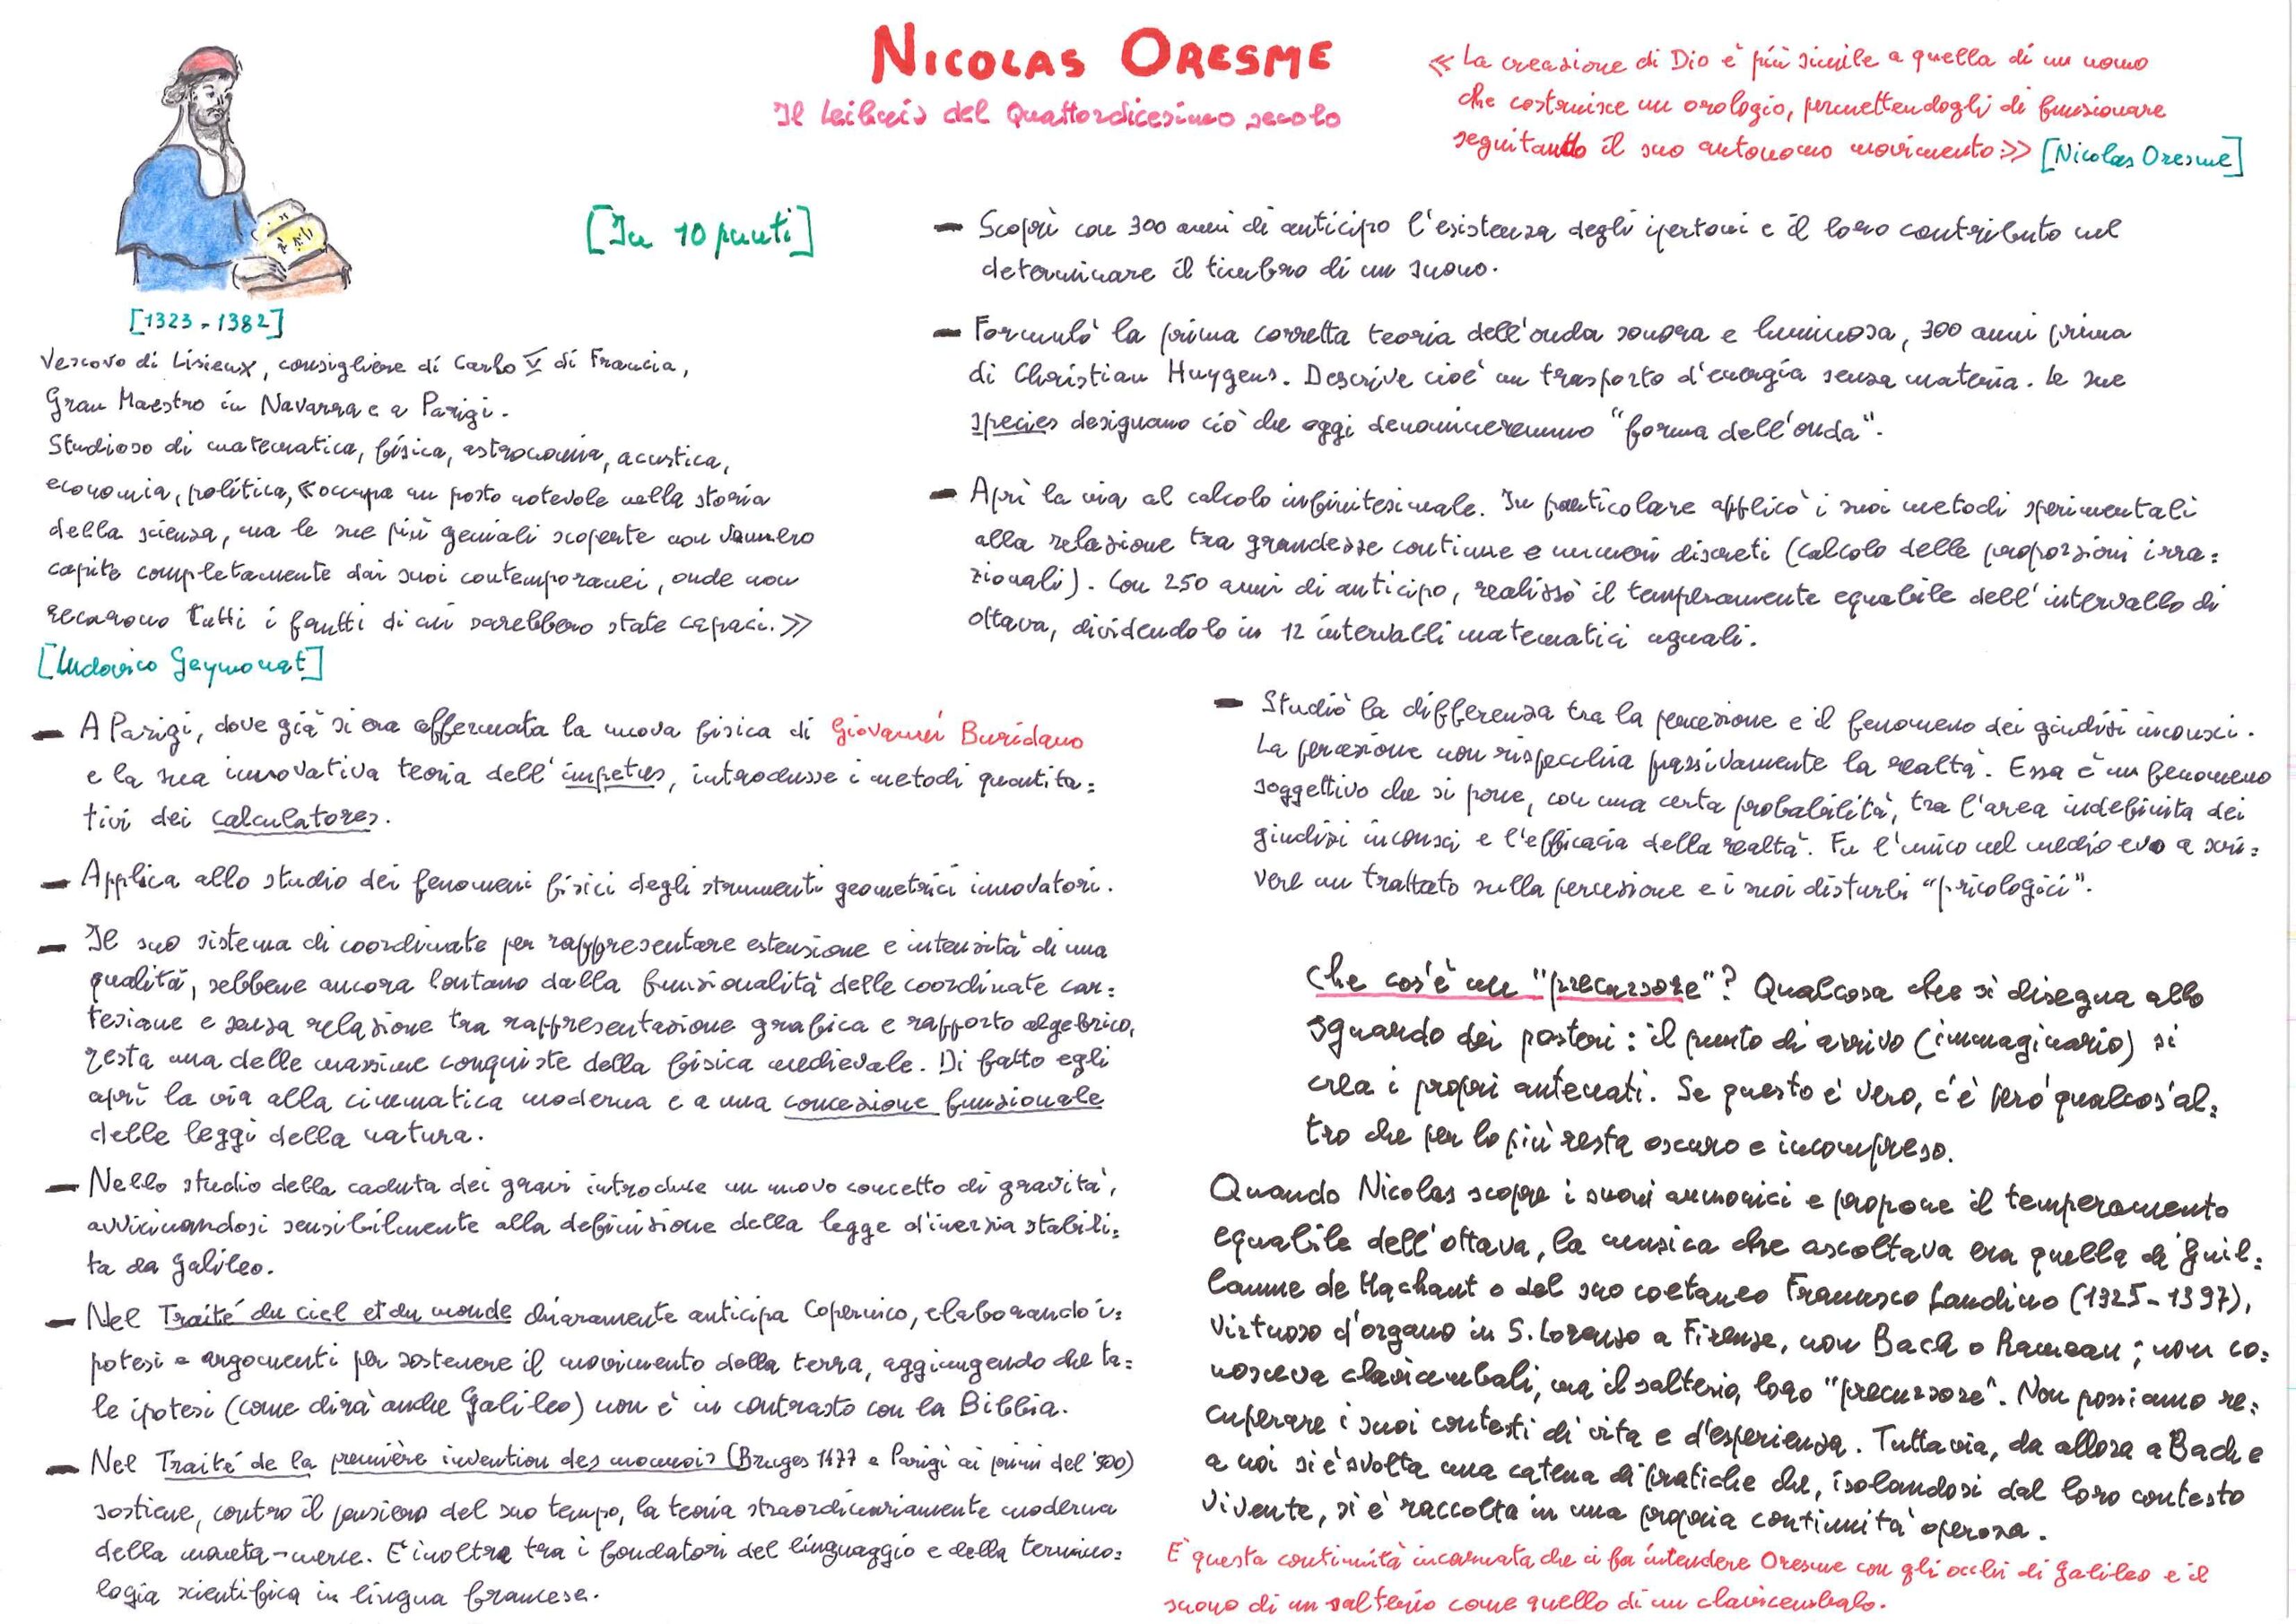 NICOLAS ORESME
Il Leibniz del Quattordicesimo secolo
« La creazione di Dio è più simile a quella di un uomo
che costruisce un orologio, permettendogli di funzionare
seguitando il suo autonomo movimento.» [Nicolas Oresme]
[In 10 punti]
[1323-1382]
Vescovo di Lisieux, consigliere di Carlo V di Francia,
Gran Maestro in Navarra e a Parigi.
Studioso di matematica, fisica, astronomia, acustica,
economia, politica, «occupa un posto notevole nella storia
della scienza, ma le sue più geniali scoperte non vennero
capite completamente dai suoi contemporanei, onde non
recarono tutti i frutti di cui sarebbero state capaci.»
[Ludovico Geymonat]
- A Parigi, dove già si era affermata la nuova fisica di Giovanni Buridano
e la sua innovativa teoria dell'impetus, introdusse i metodi quantita=
tivi dei calculatores.
- Applica allo studio dei fenomeni fisici degli strumenti geometrici innovatori.
- Il suo sistema di coordinate per rappresentare estensione e intensità di una
qualità, sebbene ancora lontano dalla funzionalità delle coordinate car=
tesiane e senza relazione tra rappresentazione grafica e rapporto algebrico,
resta una delle massime conquiste della fisica medievale. Di fatto egli
aprì la via alla cinematica moderna e a una concezione funzionale
delle leggi della natura.
- Nello studio della caduta dei gravi introduce un nuovo concetto di gravità,
avvicinandosi sensibilmente alla definizione della legge d'inerzia stabili=
ta da Galileo.
- Nel Traité du ciel et du monde chiaramente anticipa Copernico, elaborando i=
potesi e argomenti per sostenere il movimento della terra, aggiungendo che ta=
le ipotesi (come dirà anche Galileo) non è in contrasto con la Bibbia.
- Nel Traité de la première invention des monnoies (Bruges 1477 e Parigi ai primi del '500)
sostiene, contro il pensiero del suo tempo, la teoria straordinariamente moderna
della moneta-merce. E' inoltre tra i fondatori del linguaggio e della termino=
logia scientifica in lingua francese.
- Scoprì con 300 anni di anticipo l'esistenza degli ipertoni e il loro contributo nel
determinare il timbro di un suono.
- Formulò la prima corretta teoria dell'onda sonora e luminosa, 300 anni prima
di Christian Huygens. Descrive cioè un trasporto d'energia senza materia. Le sue
species designano ciò che oggi denomineremmo "forma dell'onda".
- Aprì la via al calcolo infinitesimale. In particolare applicò i suoi metodi sperimentali
alla relazione tra grandezze continue e numeri discreti (calcolo delle proporzioni irra=
zionali). Con 250 anni di anticipo, realizzò il temperamente equabile dell'intervallo di
ottava, dividendolo in 12 intervalli matematici uguali.
- Studiò la differenza tra la percezione e il fenomeno dei giudizi inconsci.
La percezione non rispecchia passivamente la realtà. Essa è un fenomeno
soggettivo che si pone, con una certa probabilità, tra l'area indefinita dei
giudizi inconsci e l'efficacia della realtà. Fu l'unico nel medio evo a scri=
vere un trattato sulla percezione e i suoi disturbi "psicologici".
Che cos'è un "precursore"? Qualcosa che si disegna allo
sguardo dei posteri: il punto di arrivo (immaginario) si
crea i propri antenati. Se questo è vero, c'è però qualcos'al=
tro che per lo più resta oscuro e incompreso.
Quando Nicolas scopre i suoni armonici e propone il temperamento
equabile dell'ottava, la musica che ascoltava era quella di Guil=
laume de Machaut o del suo coetaneo Francesco Landino (1325-1397),
virtuoso d'organo in S. Lorenzo a Firenze, non Bach o Rameau; non co=
nosceva clavicembali, ma il salterio, loro "precursore". Non possiamo re=
cuperare i suoi contesti di vita e d'esperienza. Tuttavia, da allora a Bach e
a noi si è svolta una catena di pratiche che, isolandosi dal loro contesto
vivente, si è raccolta in una propria continuità operosa.
E' questa continuità incarnata che ci fa intendere Oresme con gli occhi di Galileo e il
suono di un salterio come quello di un clavicembalo.